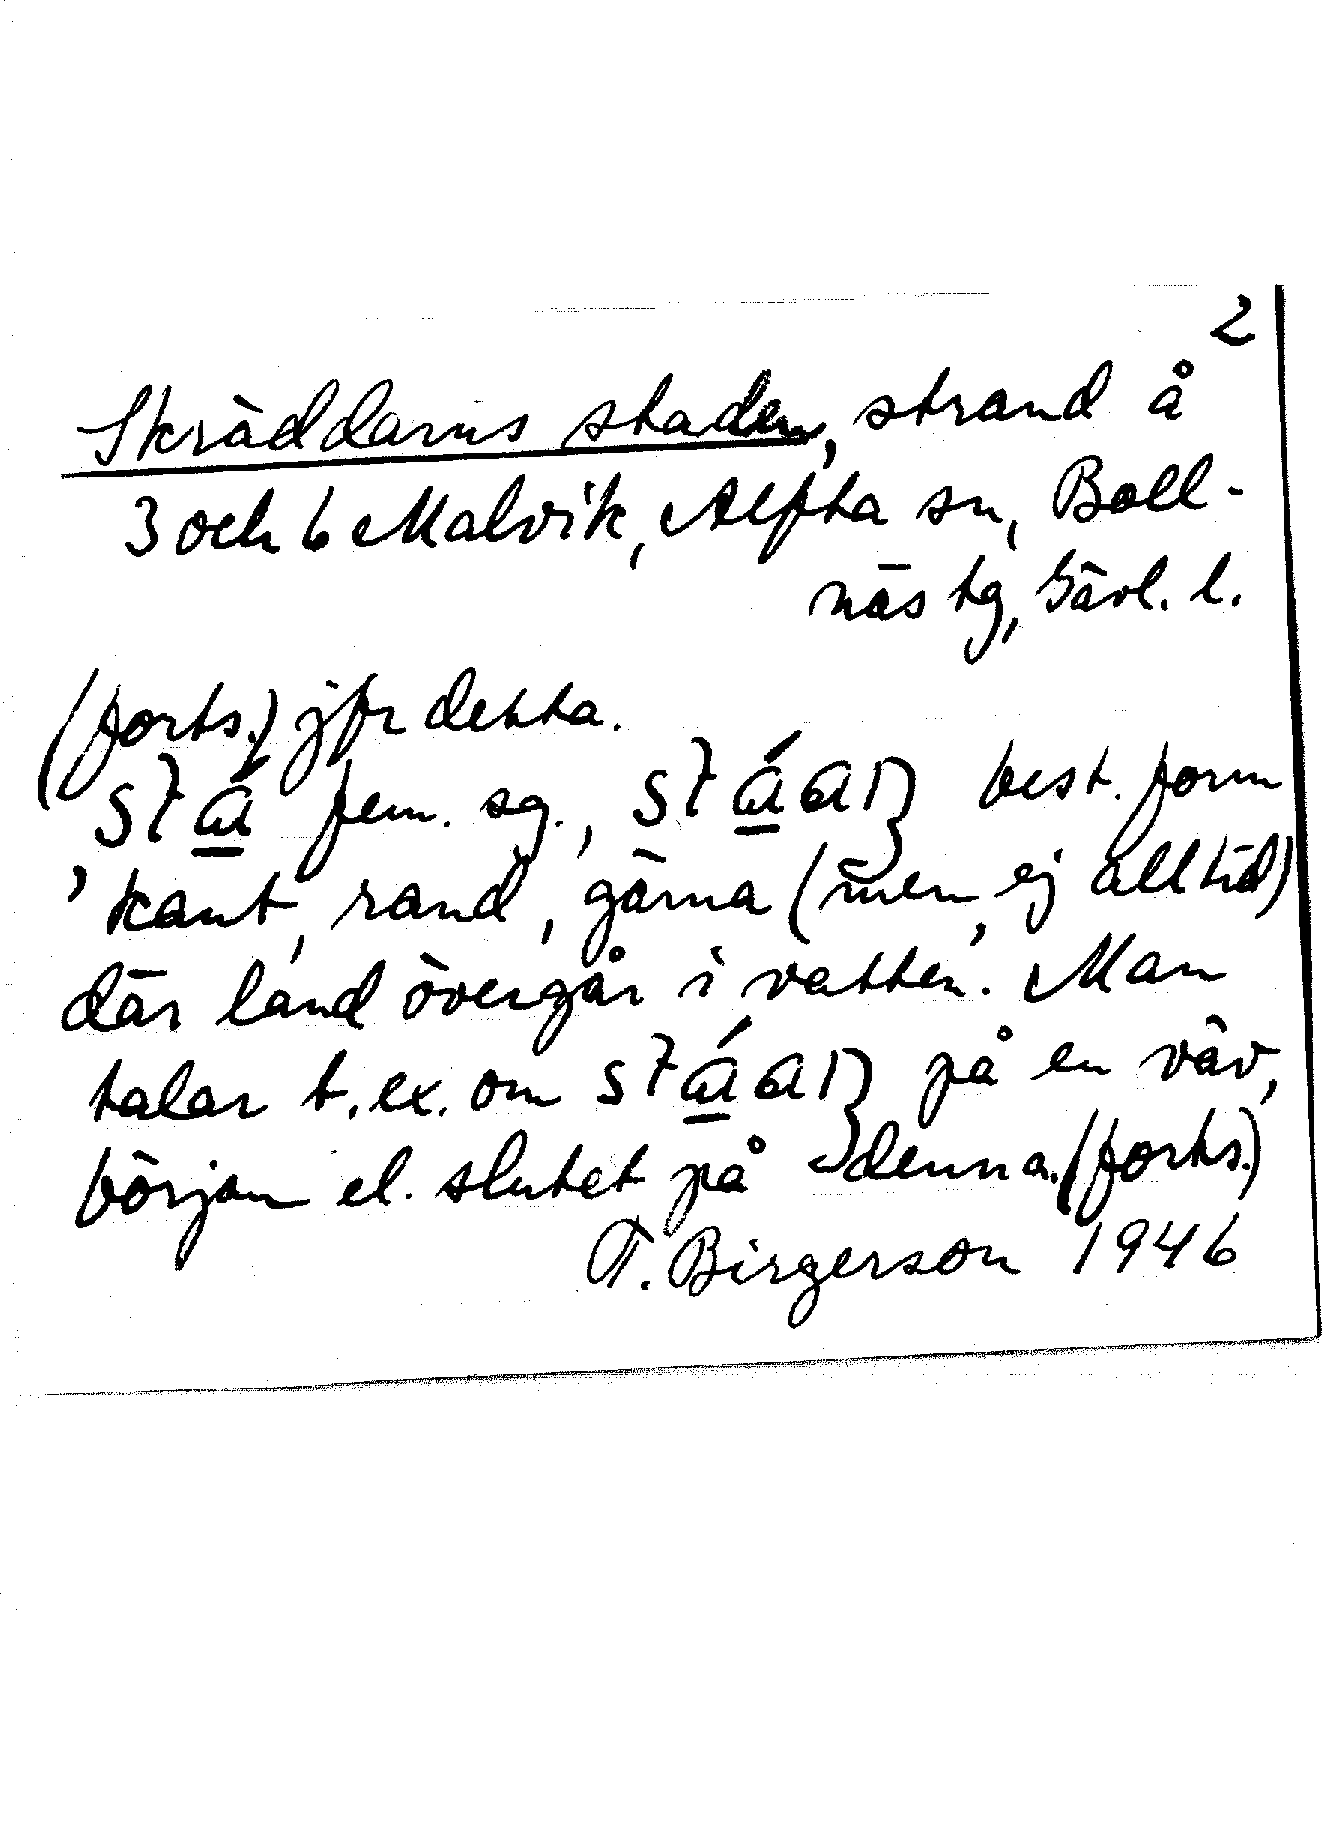 2
Skräddarns staden, strand å
3 och 6 Malvik, Alfta sn, Boll-
näs tg, Gävl. l.
(forts.) jfr detta.
sta̲ fem. sg., stá̲an best. form
’kant, rand, gärna (men ej alltid)
där land övergår i vatten’. Man
talar t.ex. om stá̲an på en väv,
början el. slutet på denna. (forts.)
T. Birgerson 1946